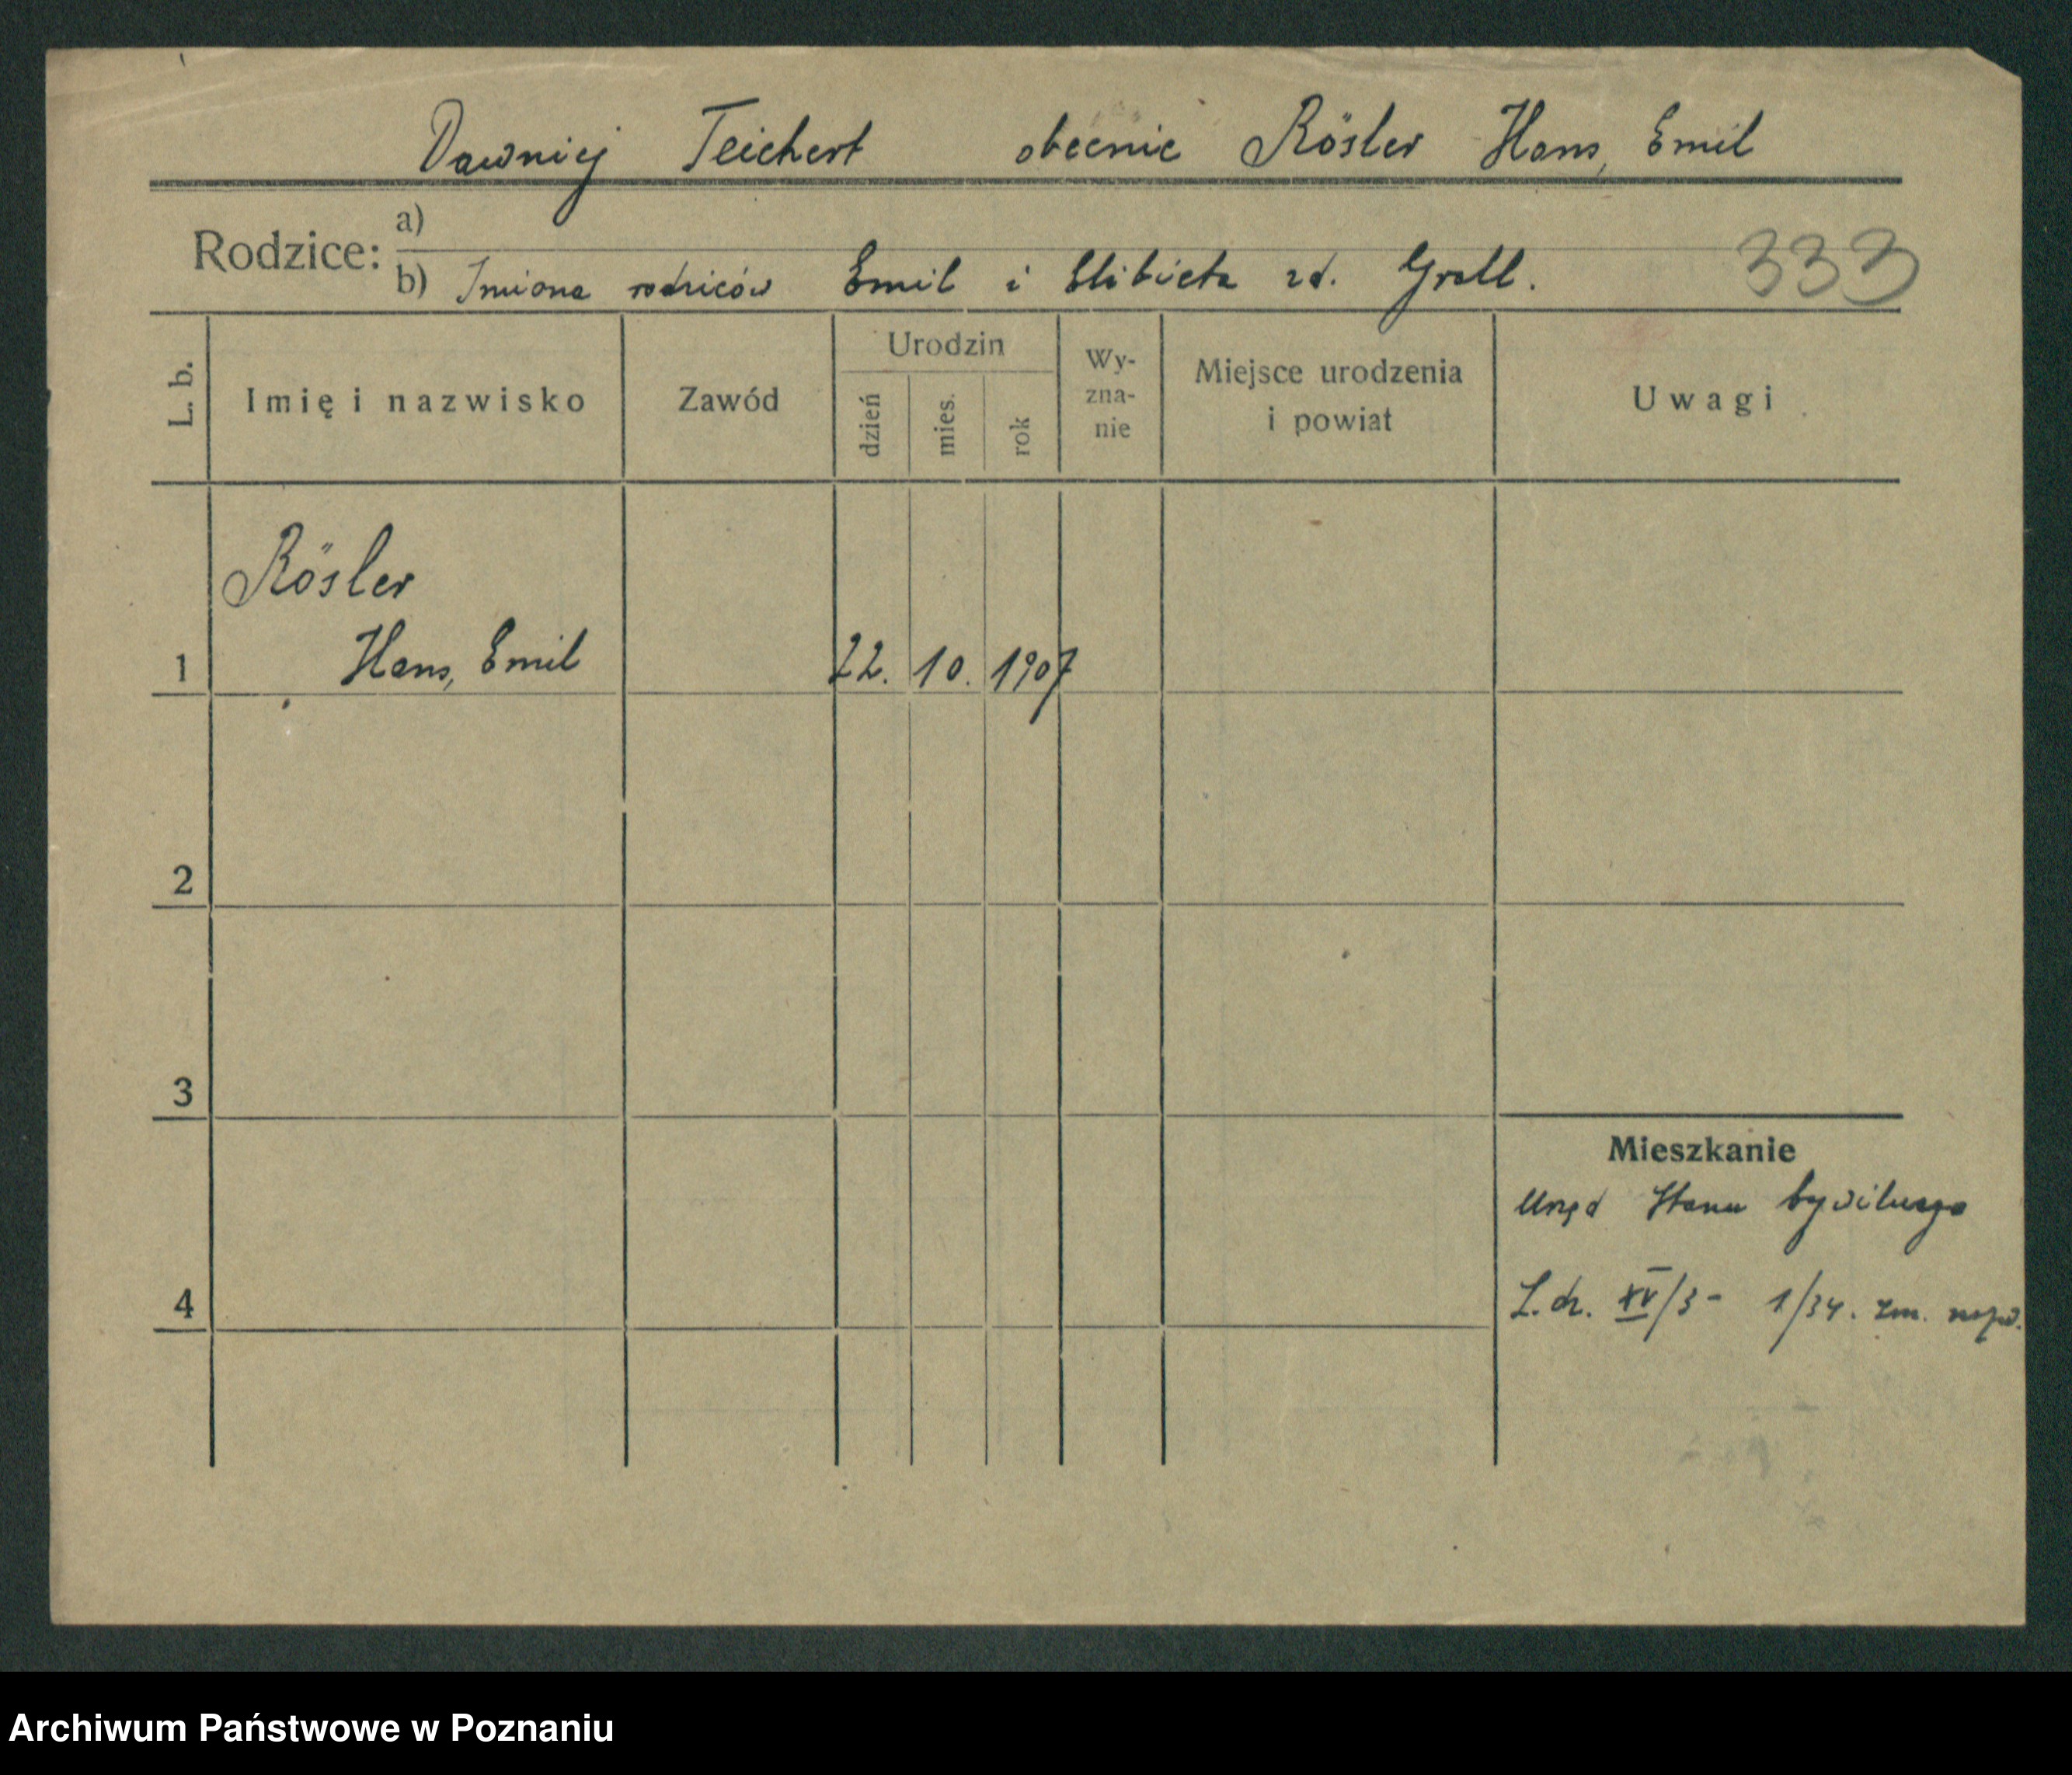 Dawniej Teichert obecnie Rösler Hans, Emil
Rodzice: a)
b) Imiona rodziców Emil i Elibieta zd. Groll.
333
L. b.
Imię i nazwisko
Zawód
Urodzin
dzień
mies.
rok
Wy-
zna-
nie
Miejsce urodzenia
i powiat
Uwagi
Rösler
1 Hans, Emil 22. 10. 1907
2
3
Mieszkanie
Urząd Stanu Cywilnego
4
L.dz. XV/3- 1/34. zm. nazw.
Archiwum Państwowe w Poznaniu